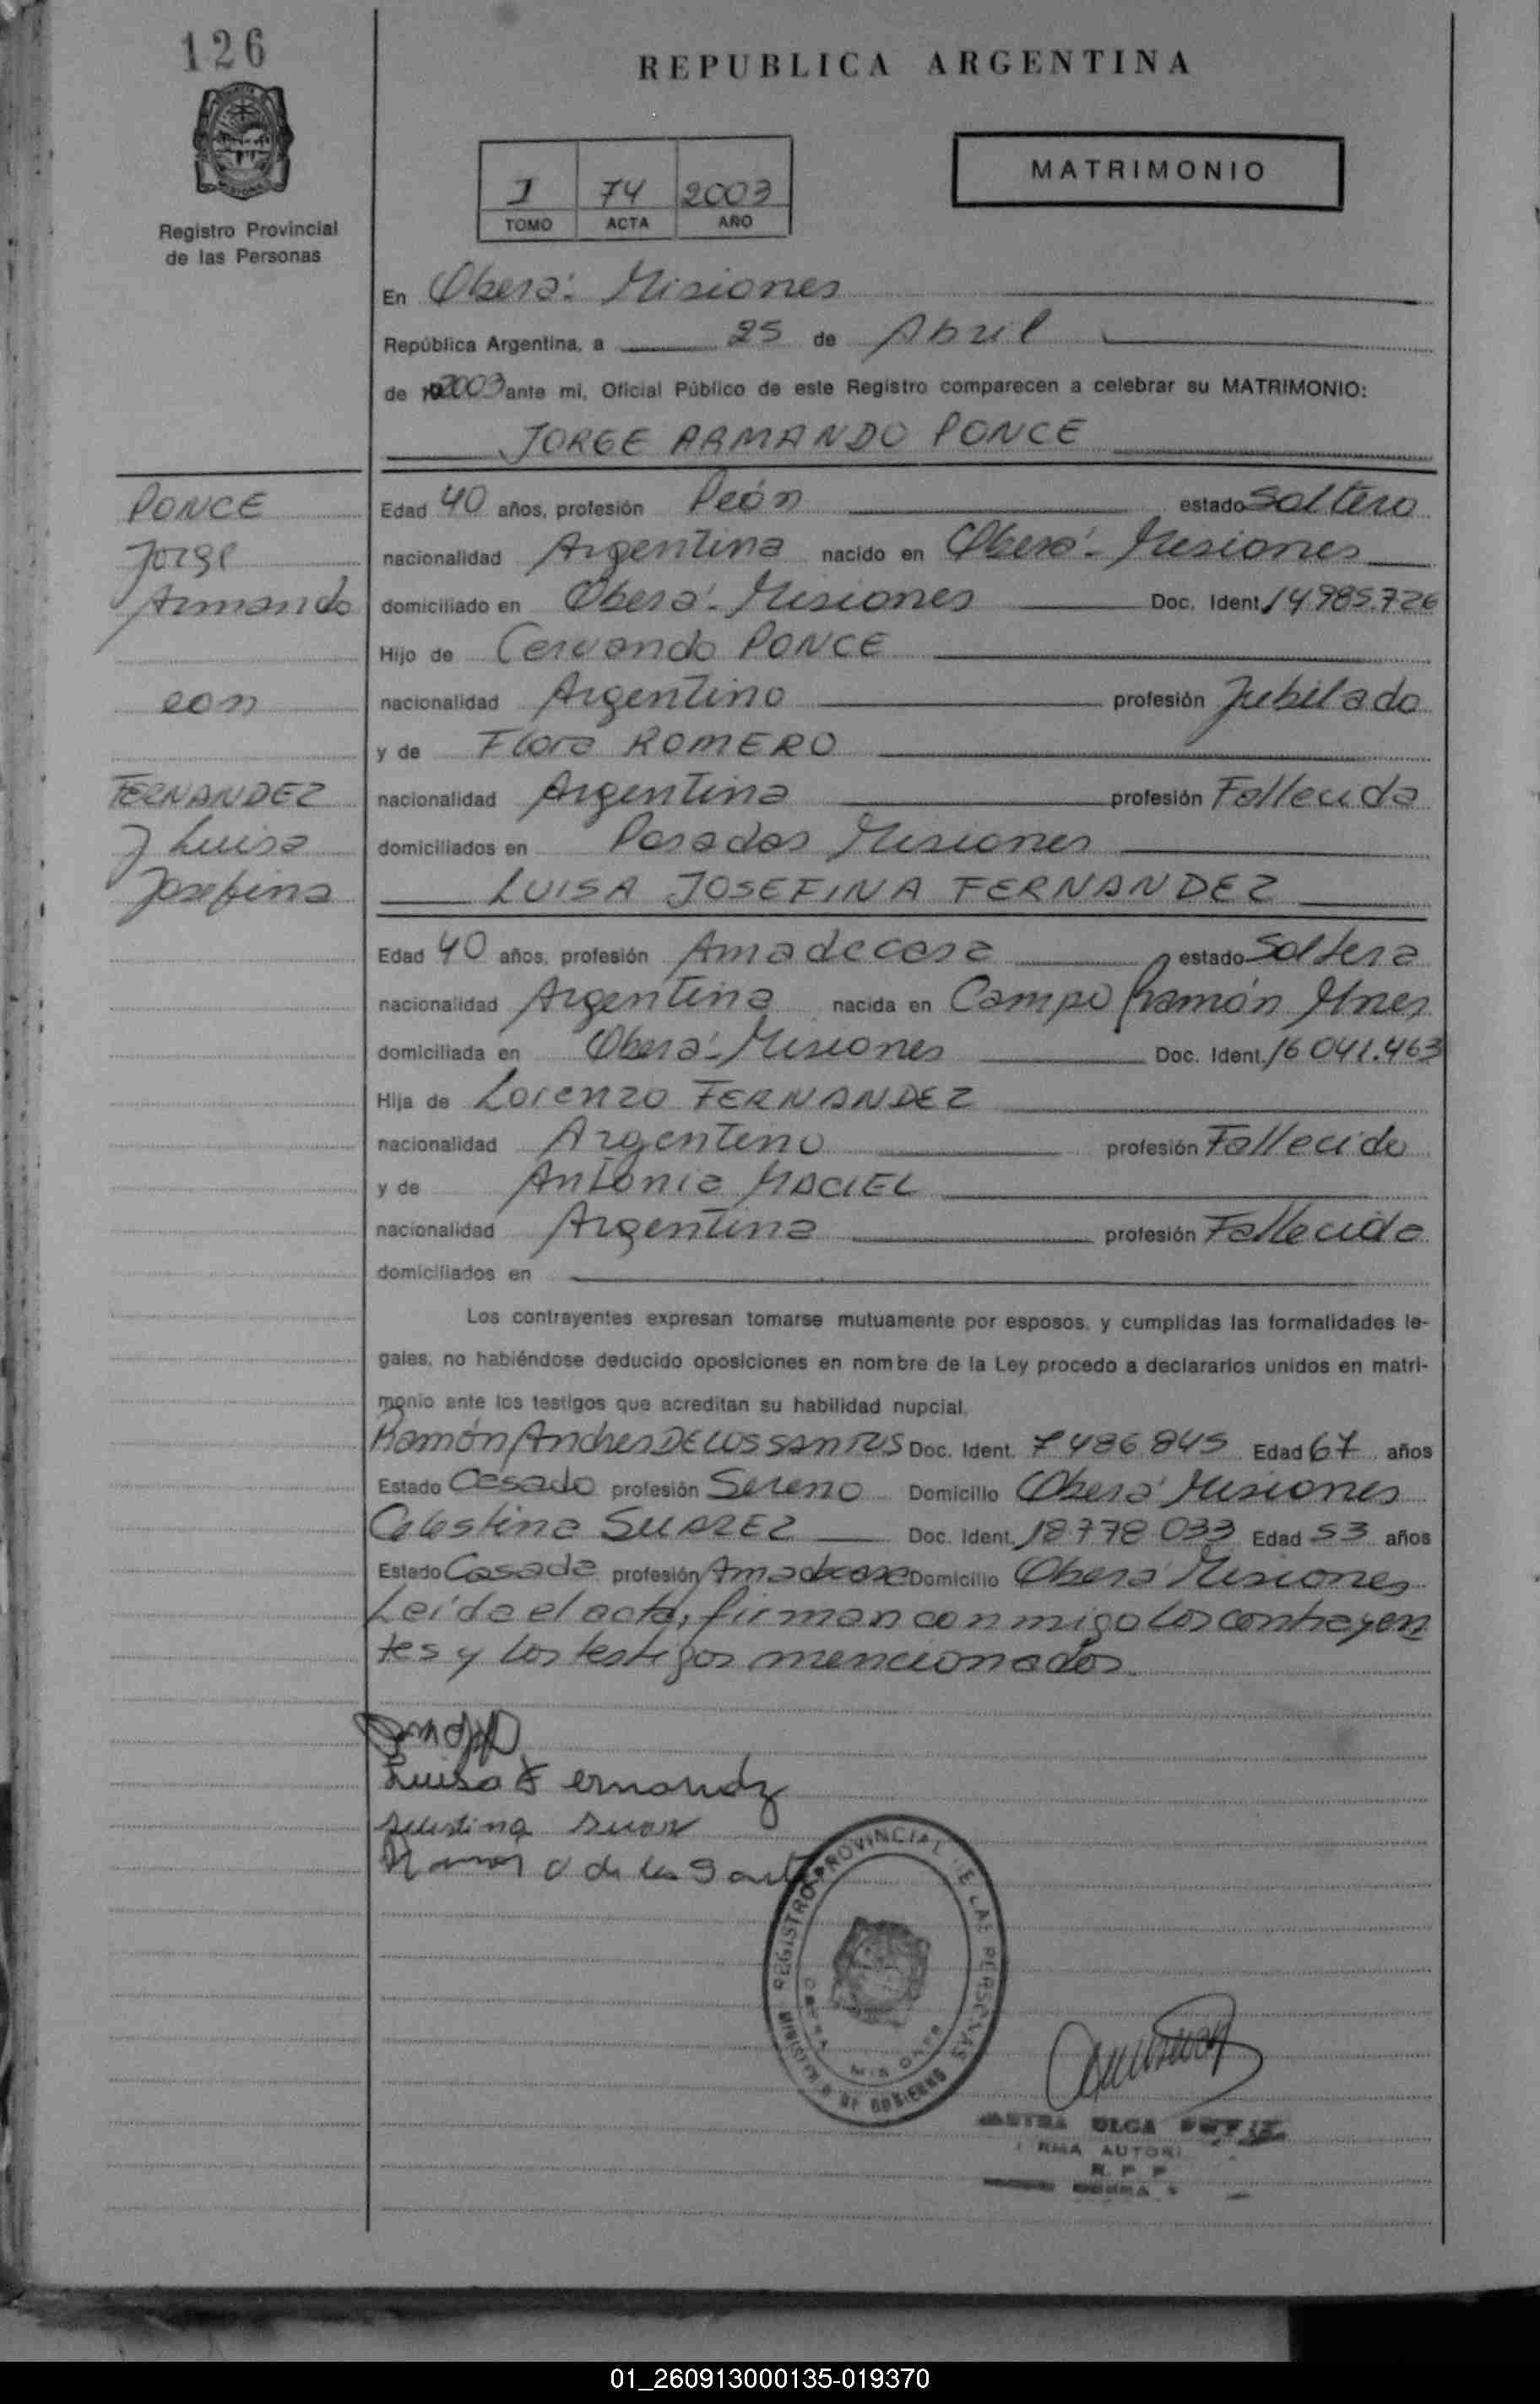 126
REPUBLICA ARGENTINA
Registro Provincial
de las Personas
I 74 2003
TOMO ACTA AÑO
MATRIMONIO
En Oberá: Misiones
República Argentina, a 25 de Abril
de 2003 ante mi, Oficial Público de este Registro comparecen a celebrar su MATRIMONIO:
JORGE ARMANDO PONCE
PONCE
Jorge
Armando
con
FERNANDEZ
Luisa
Josefina
Edad 40 años, profesión Peón estado Soltero
nacionalidad Argentina nacido en Oberá - Misiones
domiciliado en Oberá - Misiones Doc. Ident. 14.985.726
Hijo de Cervando PONCE
nacionalidad Argentino profesión Jubilado
y de Flora ROMERO
nacionalidad Argentina profesión Fallecida
domiciliados en Posadas Misiones
LUISA JOSEFINA FERNANDEZ
Edad 40 años, profesión Amadecasa estado Soltera
nacionalidad Argentina nacida en Campo Ramón Mnes
domiciliada en Oberá - Misiones Doc. Ident. 16.041.463
Hija de Lorenzo FERNANDEZ
nacionalidad Argentino profesión Fallecido
y de Antonia MACIEL
nacionalidad Argentina profesión Fallecida
domiciliados en
Los contrayentes expresan tomarse mutuamente por esposos, y cumplidas las formalidades le-
gales, no habiéndose deducido oposiciones en nombre de la Ley procedo a declararlos unidos en matri-
monio ante los testigos que acreditan su habilidad nupcial.
Ramón Andres DE LOS SANTOS Doc. Ident. 7486845 Edad 67 años
Estado Casado profesión Sereno Domicilio Oberá Misiones
Celestina SUAREZ Doc. Ident. 18.778.033 Edad 53 años
Estado Casada profesión Amadecasa Domicilio Oberá Misiones
Leída el acta, firman conmigo los contrayen
tes y los testigos mencionados.
Luisa Fernandz
REGISTRO PROVINCIAL DE LAS PERSONAS
MINISTERIO DE GOBIERNO
OBERA MISIONES
OLGA
01_260913000135-019370